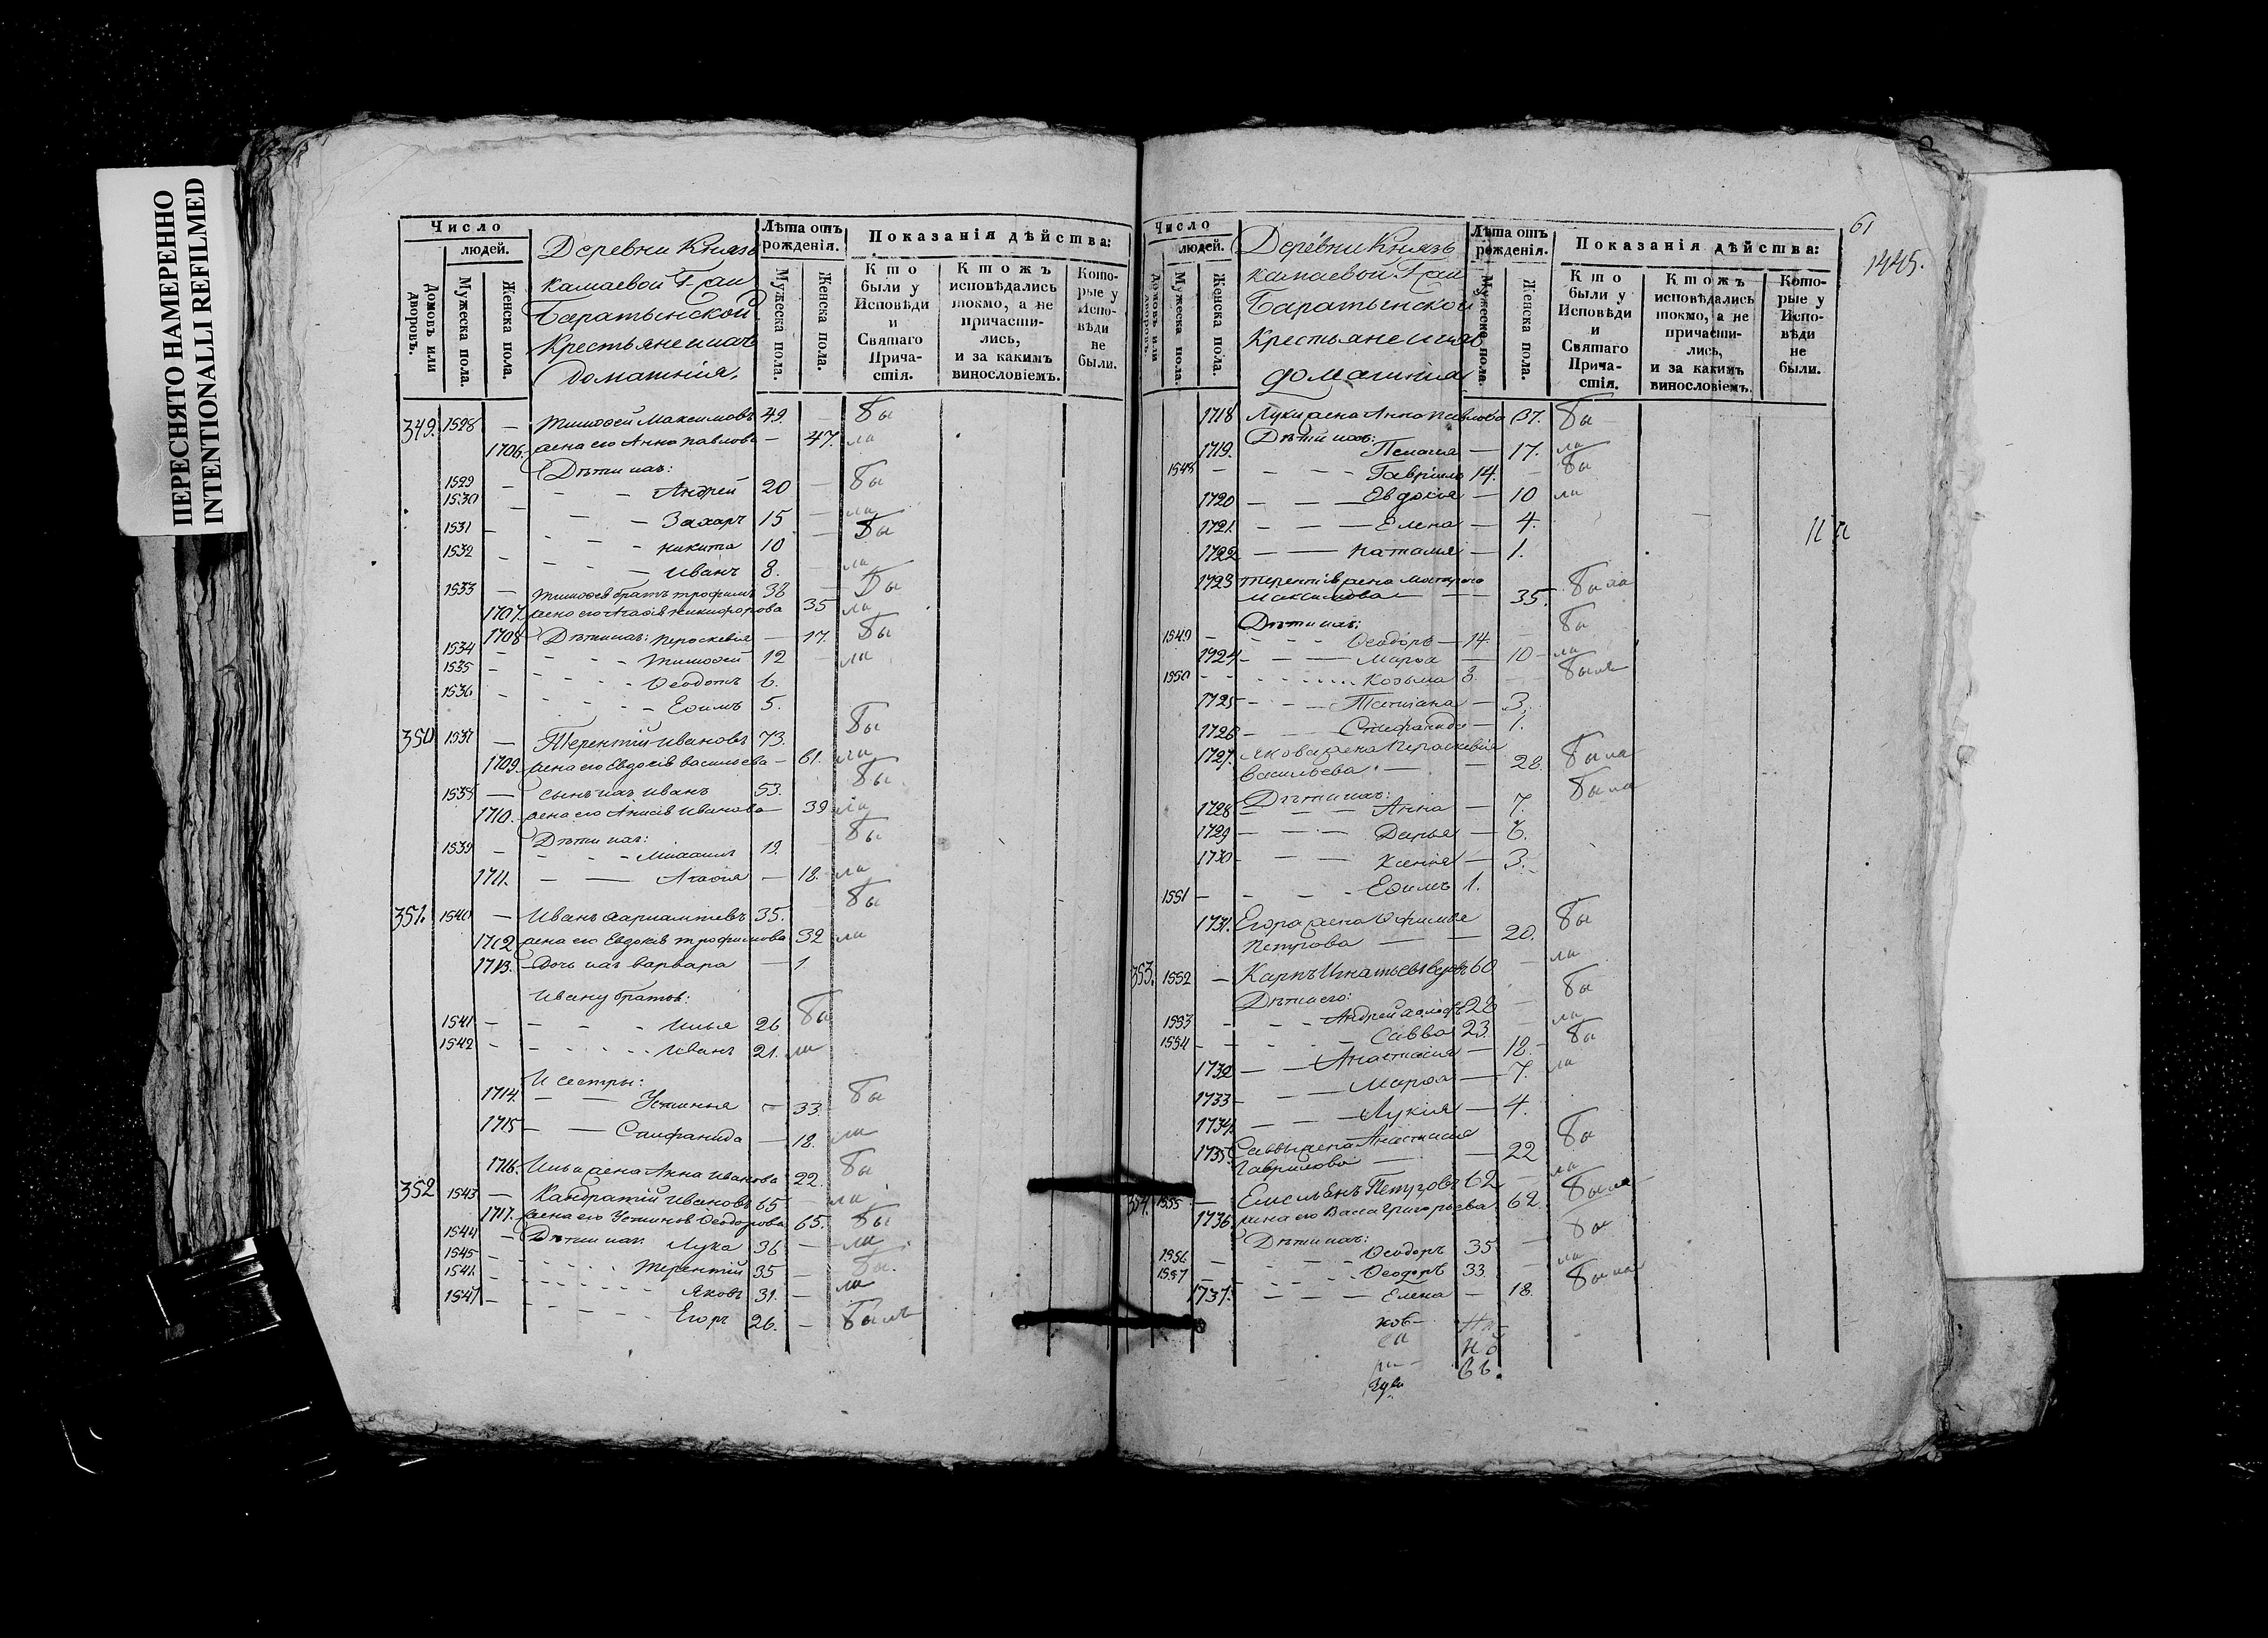 ПЕРЕСНЯТО НАМЕРЕННО
INTENTIONALLI REFILMED
Число
людей.
Домовъ или дворовъ.
Мужеска пола.
Женска пола.
Деревни Князь
камаевой Г-жи
Баратынской
Крестьяне и ихъ
домашнія.
Лѣта отъ рожденія.
Мужеска пола.
Женска пола.
Показанія дѣйства:
Кто были у Исповѣди и Святаго Причастія.
Ктожъ исповѣдались токмо, а не причастились, и за какимъ винословіемъ.
Которые у Исповѣди не были.
349. 1528 — Тимофей Максимовъ 49. — Бы
1706. жена его Анна Павлова — 47. ла
Дѣти ихъ:
1529 — Андрей 20 — Бы
1530 — Захаръ 15 — ла
1531 — Никита 10 — Бы
1532 — Иванъ 8. — ла
1533 — Тимофея братъ Трофимъ 38 — Бы
1707. жена его Агафія Никифорова 35 ла
1708 Дѣти ихъ: Пераскевія — 17. Бы
1534 — Тимофей 12 — ла
1535 — Ѳеодотъ 6.
1536 — Ефимъ 5.
350 1537 — Терентій Ивановъ 73. Бы
1709. жена его Евдокія Васильева — 61. ла
1538 — сынъ ихъ Иванъ 53. Бы
1710. жена его Анисія Иванова — 39 ла
Дѣти ихъ:
1539 — Михаилъ 19. — Бы
1711. — Агафія — 18. ла
351. 1540 — Иванъ 35. — Бы
1712 жена его Евдокія Трофимова 32 ла
1713. Дочь ихъ Варвара — 1.
Ивану братья:
1541 — Илья 26 Бы
1542 — Иванъ 21. ла
И сестры:
1714. — Устинья — 33. Бы
1715 — Стифанида — 18. ла
1716. Ильи жена Анна Иванова 22. Бы
352 1543 — Кандратій Ивановъ 65 — ла
1717. жена его Устинья Ѳеодорова 65. Бы
1544 — Дѣти ихъ: Лука 36 — ла
1545 — Терентій 35 — Бы
1546 — Яковъ 31. — ла
1547 — Егоръ 26. — Былъ
61
1445.
Число
людей.
Домовъ или дворовъ.
Мужеска пола.
Женска пола.
Деревни Князь
камаевой Г-жи
Баратынской
Крестьяне и ихъ
домашнія
Лѣта отъ рожденія.
Мужеска пола.
Женска пола.
Показанія дѣйства:
Кто были у Исповѣди и Святаго Причастія.
Ктожъ исповѣдались токмо, а не причастились, и за какимъ винословіемъ.
Которые у Исповѣди не были.
1718 Луки жена Анна Павлова 37. Бы
Дѣти ихъ:
1719. Пелагия — 17. ла
1548 — Гаврило 14. — Бы
1720 — Евдокія — 10 ла
1721. — Елена — 4.
1722 — Наталия — 1.
1723 Терентія жена
Максимова — 35. Была
Дѣти ихъ:
1549 — Ѳеодоръ — 14. — Бы
1724. — Марфа — 10 — ла
1550 — Козьма 8. — Былъ
1725 — Татіана — 3.
1726 — Стифанида — 1.
1727. Якова жена Пераскевія
Васильева — 28. Была
Дѣти ихъ:
1728 — Анна — 7. Была
1729 — Дарья — 6.
1730 — Ксения — 3.
1551 — Ефимъ 1.
1731. Егора жена Офимья
Петрова — 20. Бы
353. 1552 — Карпъ Игнатьевъ вдовъ 60 — ла
Дѣти его:
1553 — Андрей 28 — Бы
1554 — Савва 23. — ла
1732 — Анастасия — 18. Бы
1733 — Марфа — 7. ла
1734. — Лукия — 4.
1735. Саввы жена Анастасия
Гаврилова — 22 Бы
354. 1555 — Емельянъ Петровъ 62 — ла
1736. жена его Васса Григорьева 62. Была
Дѣти ихъ:
1556 — Ѳеодоръ 35 — Бы
1557 — Ѳеодоръ 33 — ла
1737. — Елена — 18. Была